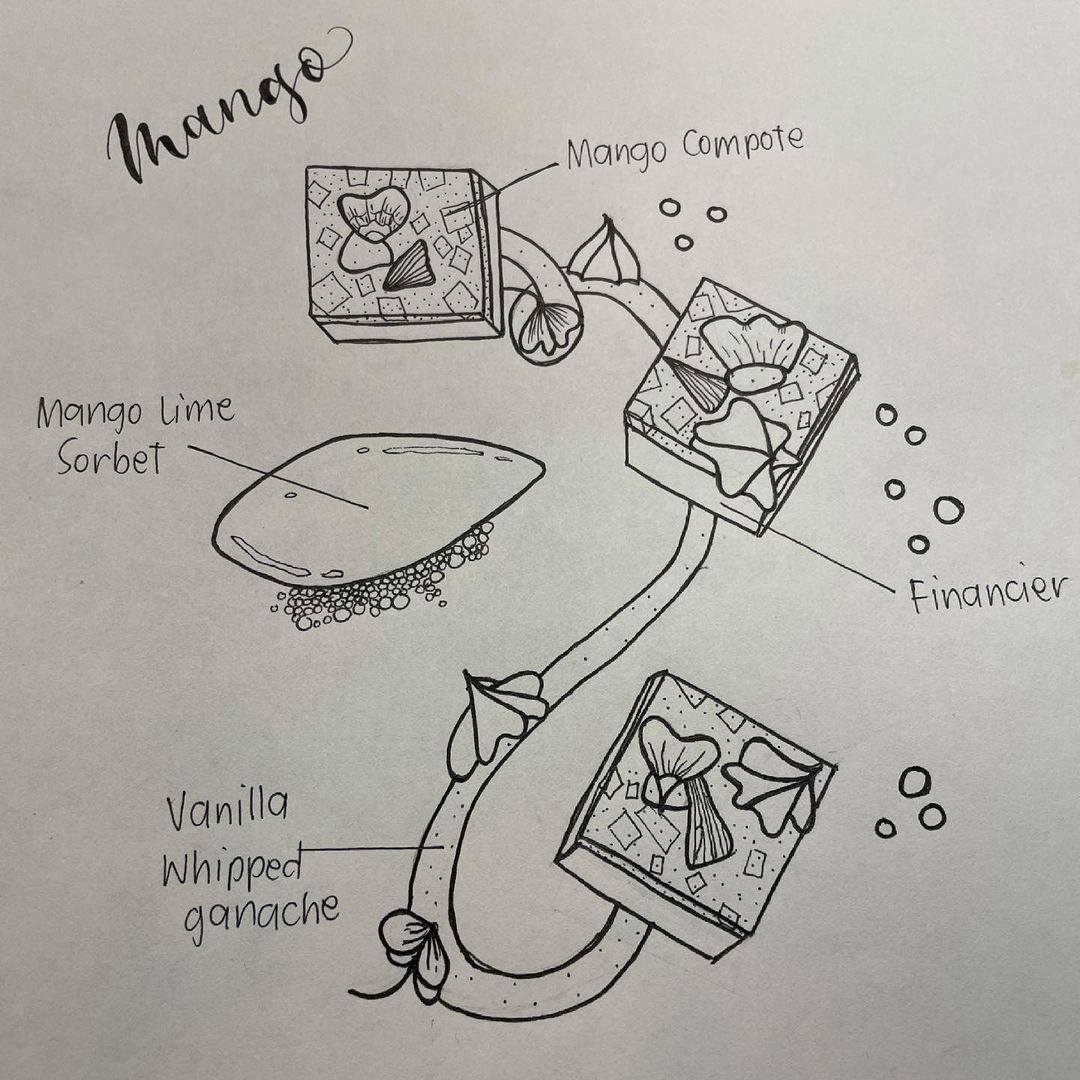 Mango
Mango Compote
Mango Lime
Sorbet
Financier
Vanilla
Whipped
ganache